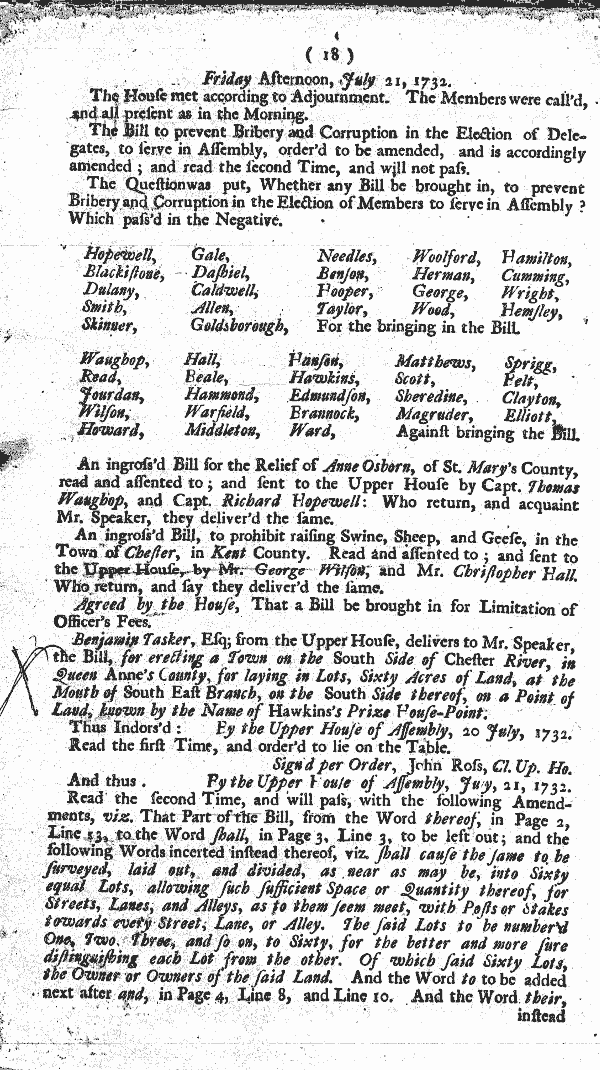 ( 18 )
Friday Afternoon, July 21, 1732.
The Houſe met according to Adjournment. The Members were call'd,
and all preſent as in the Morning.
The Bill to prevent Bribery and Corruption in the Election of Dele-
gates, to ſerve in Aſſembly, order'd to be amended, and is accordingly
amended ; and read the ſecond Time, and will not paſs.
The Queſtion was put, Whether any Bill be brought in, to prevent
Bribery and Corruption in the Election of Members to ſerve in Aſſembly ?
Which paſs'd in the Negative.
Hopewell, Gale, Needles, Woolford, Hamilton,
Blackiſtone, Daſhiel, Benſon, Herman, Cumming,
Dulany, Caldwell, Hooper, George, Wright,
Smith, Allen, Taylor, Wood, Hemſley,
Skinner, Goldsborough, For the bringing in the Bill.
Waughop, Hall, Hanſon, Matthews, Sprigg,
Read, Beale, Hawkins, Scott, Belt,
Jourdan, Hammond, Edmundſon, Sheredine, Clayton,
Wilſon, Warfield, Brannock, Magruder, Elliott,
Howard, Middleton, Ward, Againſt bringing the Bill.
An ingroſs'd Bill for the Relief of Anne Osborn, of St. Mary's County,
read and aſſented to ; and ſent to the Upper Houſe by Capt. Thomas
Waughop, and Capt. Richard Hopewell: Who return, and acquaint
Mr. Speaker, they deliver'd the ſame.
An ingroſs'd Bill, to prohibit raiſing Swine, Sheep, and Geeſe, in the
Town of Cheſter, in Kent County. Read and aſſented to ; and ſent to
the Upper Houſe, by Mr. George Wilſon, and Mr. Chriſtopher Hall.
Who return, and ſay they deliver'd the ſame.
Agreed by the Houſe, That a Bill be brought in for Limitation of
Officer's Fees.
Benjamin Tasker, Eſq; from the Upper Houſe, delivers to Mr. Speaker,
the Bill, for erecting a Town on the South Side of Cheſter River, in
Queen Anne's County, for laying in Lots, Sixty Acres of Land, at the
Mouth of South Eaſt Branch, on the South Side thereof, on a Point of
Land, known by the Name of Hawkins's Prize Houſe-Point.
Thus Indors'd : By the Upper Houſe of Aſſembly, 20 July, 1732.
Read the firſt Time, and order'd to lie on the Table.
Sign'd per Order, John Roſs, Cl. Up. Ho.
And thus . By the Upper Houſe of Aſſembly, July, 21, 1732.
Read the ſecond Time, and will paſs, with the following Amend-
ments, viz. That Part of the Bill, from the Word thereof, in Page 2,
Line 13, to the Word ſhall, in Page 3, Line 3, to be left out ; and the
following Words incerted inſtead thereof, viz. ſhall cauſe the ſame to be
ſurveyed, laid out, and divided, as near as may be, into Sixty
equal Lots, allowing ſuch ſufficient Space or Quantity thereof, for
Streets, Lanes, and Alleys, as to them ſeem meet, with Poſts or Stakes
towards every Street, Lane, or Alley. The ſaid Lots to be number'd
One, Two, Three, and ſo on, to Sixty, for the better and more ſure
diſtinguiſhing each Lot from the other. Of which ſaid Sixty Lots,
the Owner or Owners of the ſaid Land. And the Word to to be added
next after and, in Page 4, Line 8, and Line 10. And the Word their,
inſtead